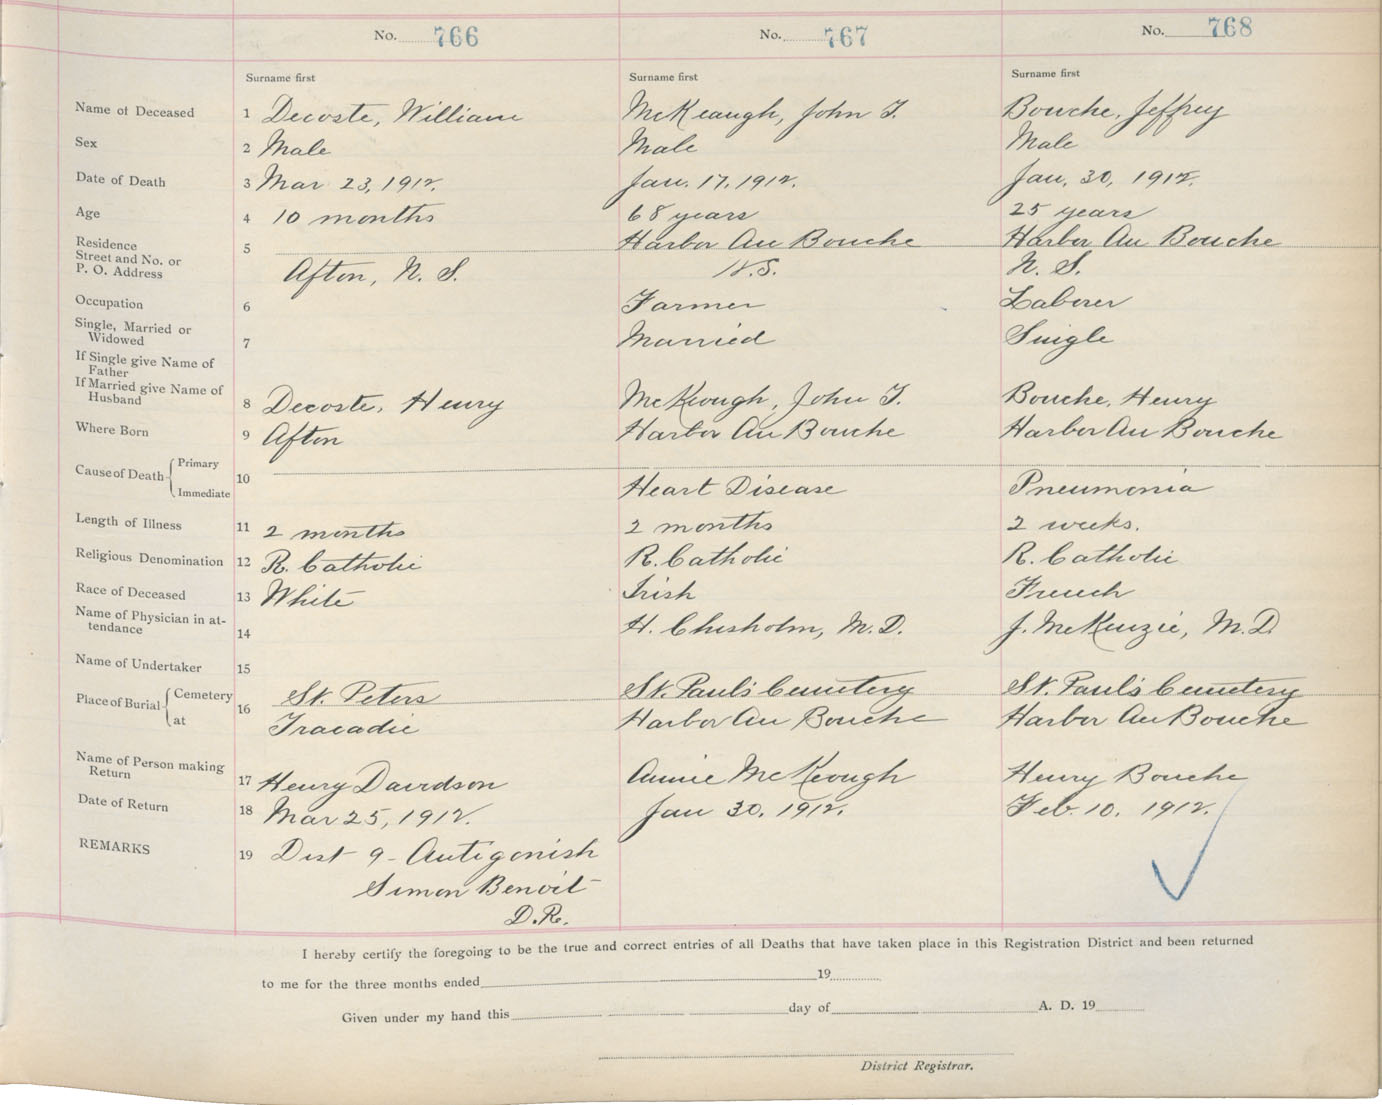 No. 766 No. 767 No. 768
Surname first Surname first Surname first
Name of Deceased 1 Decoste, William McKeaugh, John T. Bouche, Jeffrey
Sex 2 Male Male Male
Date of Death 3 Mar 23, 1912. Jan. 17, 1912. Jan, 30, 1912.
Age 4 10 months 68 years 25 years
Residence 5 Harbor Au Bouche Harbor Au Bouche
Street and No. or
P. O. Address Afton, N. S. N.S. N. S.
Occupation 6 Farmer Laborer
Single, Married or
Widowed 7 Married Single
If Single give Name of
Father
If Married give Name of
Husband 8 Decoste, Henry McKeough, John T. Bouche, Henry
Where Born 9 Afton Harbor Au Bouche Harbor Au Bouche
Cause of Death Primary
10
Immediate Heart Disease Pneumonia
Length of Illness 11 2 months 2 months 2 weeks.
Religious Denomination 12 R. Catholic R. Catholic R. Catholic
Race of Deceased 13 White Irish French
Name of Physician in at-
tendance 14 H. Chisholm, M.D. J. McKenzie, M.D.
Name of Undertaker 15
Place of Burial Cemetery 16 St. Peters St. Paul's Cemetery St. Paul's Cemetery
at Tracadie Harbor Au Bouche Harbor Au Bouche
Name of Person making
Return 17 Henry Davidson Annie McKeough Henry Bouche
Date of Return 18 Mar 25, 1912. Jan 30, 1912. Feb. 10, 1912.
REMARKS 19 Dist 9 - Antigonish
Simon Benoit
D.R.
I hereby certify the foregoing to be the true and correct entries of all Deaths that have taken place in this Registration District and been returned
to me for the three months ended 19
Given under my hand this day of A. D. 19
District Registrar.